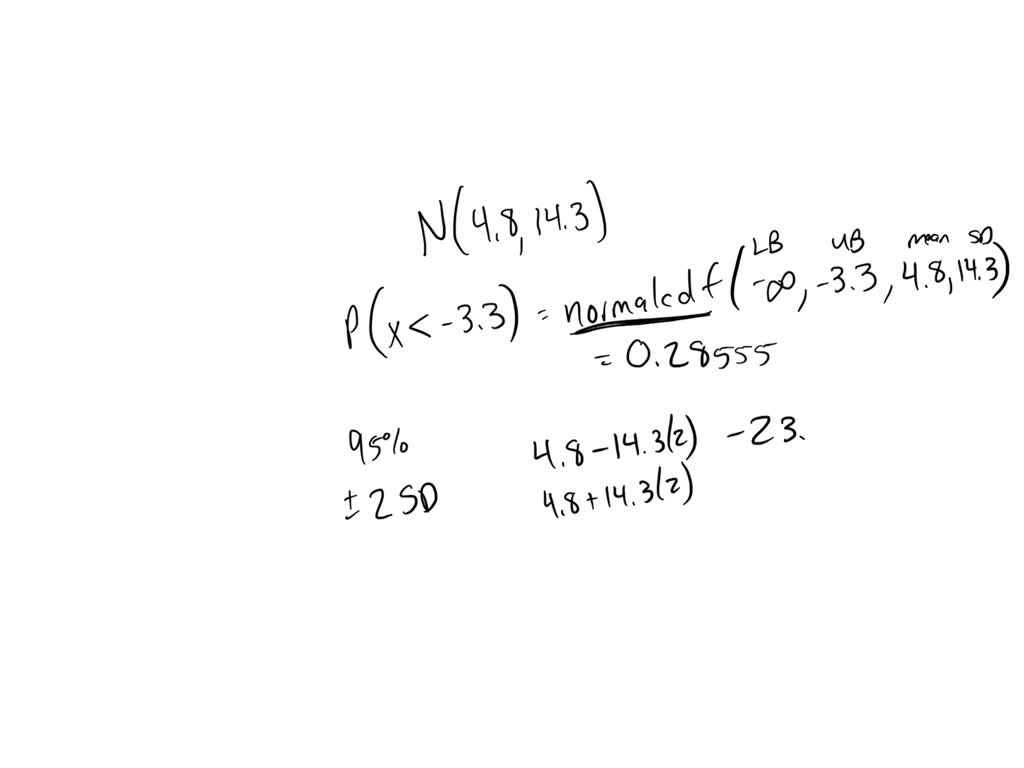 N(4.8, 14.3)
LB UB mean SD
P(x < -3.3) = normalcdf(-∞, -3.3, 4.8, 14.3)
= 0.28555
95% 4.8 - 14.3(2) -23.
± 2 SD 4.8 + 14.3(2)